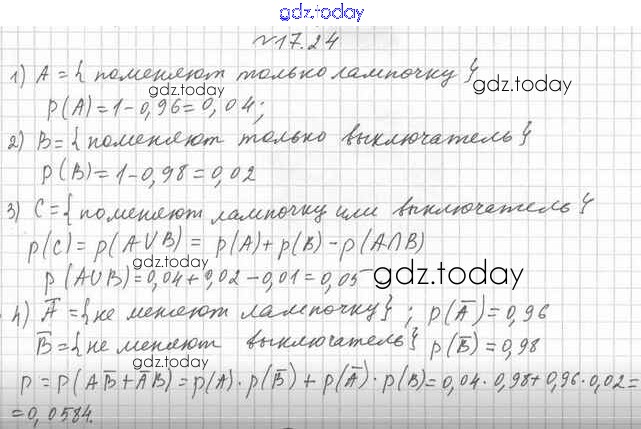 gdz.today
№17.24
1) A = { поменяют только лампочку }
gdz.today
p(A) = 1 - 0,96 = 0,04;
2) B = { поменяют только выключатель }
gdz.today
p(B) = 1 - 0,98 = 0,02
3) C = { поменяют лампочку или выключатель }
p(C) = p(A∪B) = p(A) + p(B) - p(A∩B)
p(A∪B) = 0,04 + 0,02 - 0,01 = 0,05
gdz.today
4) A̅ = { не меняют лампочку }; p(A̅) = 0,96
gdz.today
B̅ = { не меняют выключатель } p(B̅) = 0,98
gdz.today
p = p(AB̅ + A̅B) = p(A) · p(B̅) + p(A̅) · p(B) = 0,04 · 0,98 + 0,96 · 0,02 =
= 0,0584.